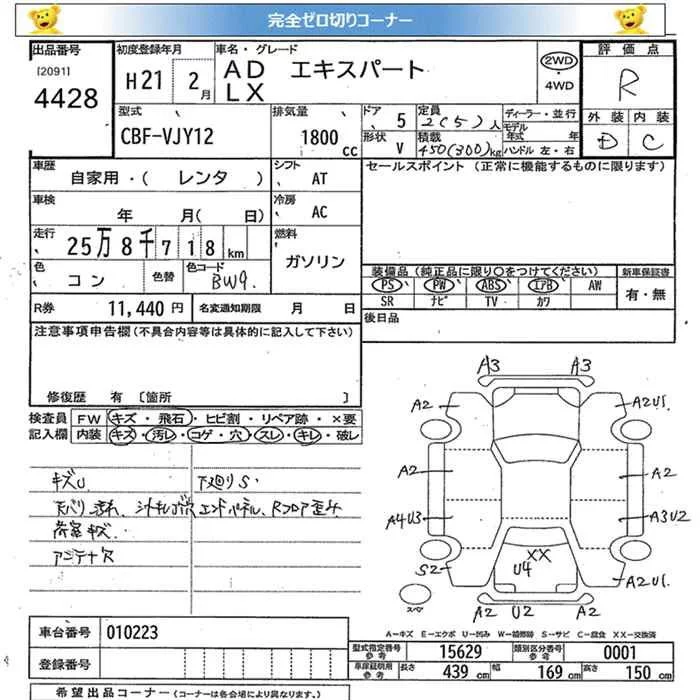 完全ゼロ切りコーナー
出品番号
[2091]
4428
初度登録年月
H21 2月
車名・グレード
AD エキスパート
LX
2WD
・
4WD
評価点
R
外装 内装
D C
型式
CBF-VJY12
排気量
1800 cc
ドア
5
形状
V
定員
2(5)人
積載
450(300)kg
ディーラー・並行
モデル
年式 年
ハンドル 左・右
車歴
自家用・( レンタ )
シフト
AT
車検
年 月( 日)
冷房
AC
走行
25万8千718km
燃料
ガソリン
色
コン
色替
色コード
BW9.
R券
11,440円
名変通知期限 月 日
セールスポイント (正常に機能するものに限ります)
装備品 (純正品に限り○をつけてください)
新車保証書
PS PW ABS エアB AW
SR ナビ TV カワ
有・無
後日品
注意事項申告欄 (不具合内容等は具体的に記入して下さい)
修復歴 有 [箇所 ]
検査員
記入欄
FW キズ・飛石・ヒビ割・リペア跡・×要
内装 キズ・汚レ・コゲ・穴・スレ・キレ・破レ
キズU 下廻りS.
エンドパネル、Rフロア歪み
荷室キズ.
アンテナ欠
A3 A3
A2 A2U1.
A2 A2
A4U3 A3U2
XX
U4
S2 A2U1.
A2 U2 A2
スペア
A-キズ E-エクボ U-凹み W-補修跡 S-サビ C-腐食 XX-交換済
車台番号 010223
登録番号
型式指定番号
参考
15629
類別区分番号
参考
0001
車庫証明用
参考
長さ 439 cm 幅 169 cm 高さ 150 cm
希望出品コーナー (コーナーは各会場により異なります。)